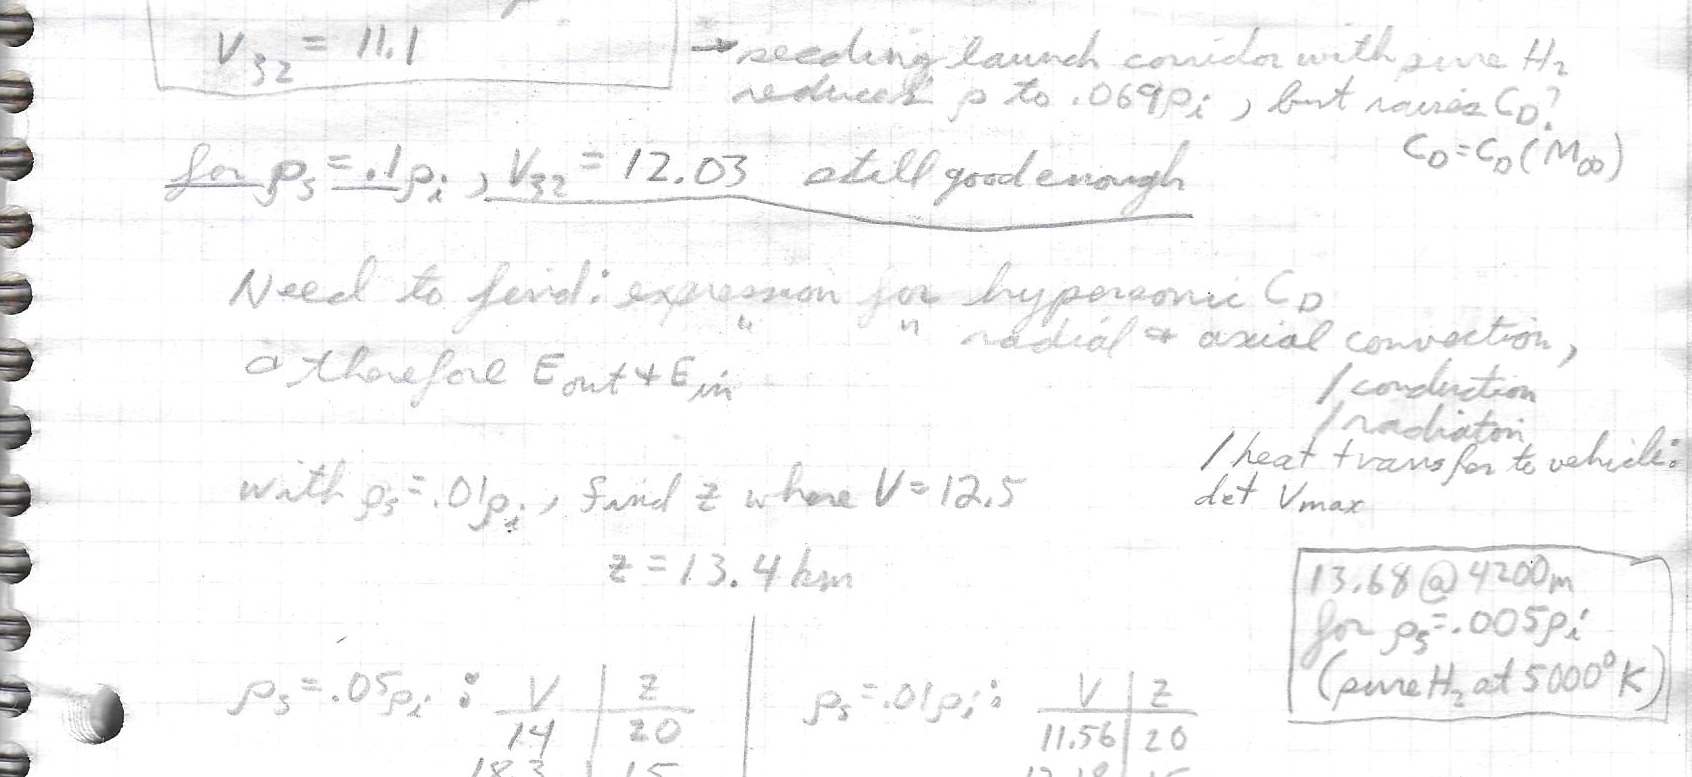 V₃₂ = 11.1
→ seeding launch corridor with pure H₂
reduces ρ to .069ρᵢ, but raises C_D?
C_D = C_D(M∞)
for ρ₅ = .1ρᵢ, V₃₂ = 12.03 still good enough
Need to find: expression for hypersonic C_D
" " radial & axial convection,
/ conduction
/ radiation
/ heat transfer to vehicle:
det Vmax
& therefore E out & E in
with ρ₅ = .01ρᵢ, find z where V = 12.5
z = 13.4 km
13.68 @ 4200m
for ρ₅ = .005ρᵢ
(pure H₂ at 5000°K)
ρ₅ = .05ρᵢ : V | z
14 | 20
18.3 | 15
ρ₅ = .01ρᵢ : V | z
11.56 | 20